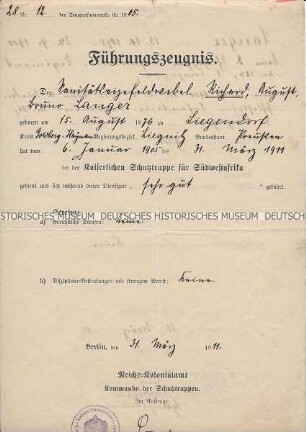 28 a. 12 der Truppenstammrolle für 1905.
Führungszeugnis.
Der Sanitätsvizefeldwebel Richard, August,
Bruno Langer
geboren am 15. August 1876 zu Liegendorf
Kreis Regierungsbezirk Liegnitz Bundesstaat Preußen
hat vom 6. Januar 1905 bis 31. März 1911
bei der Kaiserlichen Schutztruppe für Südwestafrika
gedient und sich während dieser Dienstzeit „Sehr gut" geführt.
DEUTSCHES HISTORISCHES MUSEUM DEUTSCHES HISTORISCHES MUSEUM
Strafen:
a) Gerichtliche Strafen: keine.
b) Disziplinarbestrafungen mit strengem Arrest: keine.
Berlin, den 31. März 1911.
Reichs-Kolonialamt
Kommando der Schutztruppen.
Im Auftrage.